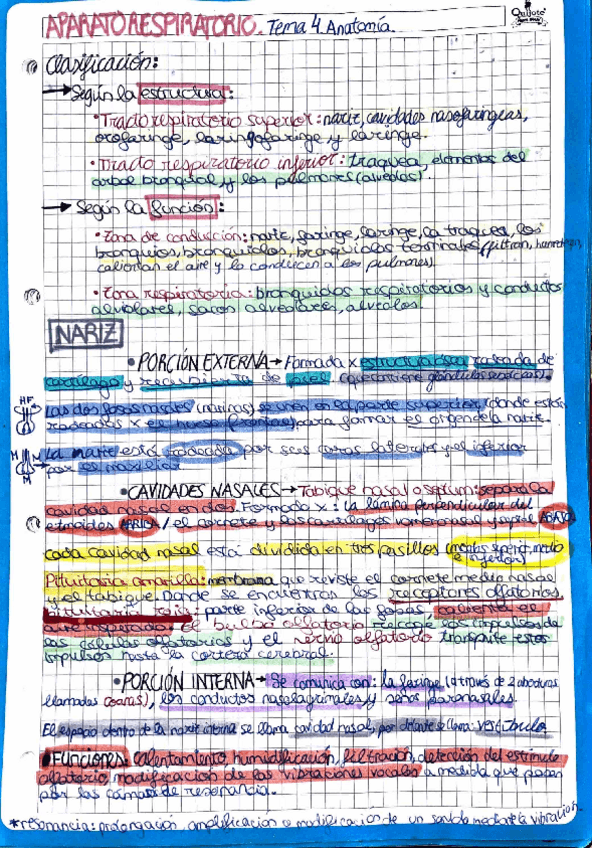 APARATO RESPIRATORIO. Tema 4. Anatomía.
Quijote
Clasificación:
→ Según la estructura:
• Tracto respiratorio superior: nariz, cavidades nasofaríngeas,
orofaringe, laringofaringe y laringe.
• Tracto respiratorio inferior: traquea, elementos del
arbol bronquial, y los pulmones (alveolos).
→ Según la función:
• Zona de conducción: nariz, faringe, laringe, la traquea, los
bronquios, bronquiolos, bronquiolos terminales (filtran,
calientan el aire y lo conducen a los pulmones).
• Zona respiratoria: bronquiolos respiratorios y conductos
alveolares, sacos alveolares, alveolos.
NARIZ
• PORCIÓN EXTERNA → Formada x estructura ósea rodeada de
cartílago y recubierta de piel. (que contiene glándulas sebáceas).
HF
Las dos fosas nasales (narinas) se unen en la parte superior (donde están
rodeadas x el hueso frontal) para formar el origen de la nariz.
La nariz está rodeada por sus caras laterales y el inferior
por el maxilar.
M M
M
• CAVIDADES NASALES → Tabique nasal o septum: separa la
cavidad nasal en dos. Formada x: la lámina perpendicular del
etmoides ARRIBA / el cornete y los cartílagos vomeronasal y septal ABAJO
Cada cavidad nasal está dividida en tres pasillos (meatos superior, medio
e inferior)
Pituitaria amarilla: membrana que reviste el cornete medio nasal
y el tabique. Donde se encuentran los receptores olfatorios.
Pituitaria roja: parte inferior de las fosas, calienta el
aire respirado. El bulbo olfatorio recoge los impulsos de
las células olfatorias y el nervio olfatorio transmite estos
impulsos hasta la corteza cerebral.
• PORCIÓN INTERNA → Se comunica con: la faringe (a través de 2 aberturas
llamadas coanas), los conductos nasolagrimales y senos paranasales.
El espacio dentro de la nariz interna se llama cavidad nasal, por delante se llama: vestíbulo
• Funciones: calentamiento, humidificación, filtración, detección del estímulo
olfatorio, modificación de las vibraciones vocales a medida que pasan
por las cámaras de resonancia.
*resonancia: prolongación, amplificación o modificación de un sonido mediante la vibración.